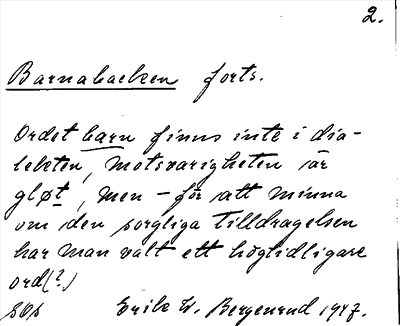 2.
Barnabacken forts.
Ordet barn finns inte i dia-
lekten, motsvarigheten är
gløt, men - för att minna
om den sorgliga tilldragelsen
har man valt ett högtidligare
ord(?)
SOS Erik W. Bergenrud 1947.